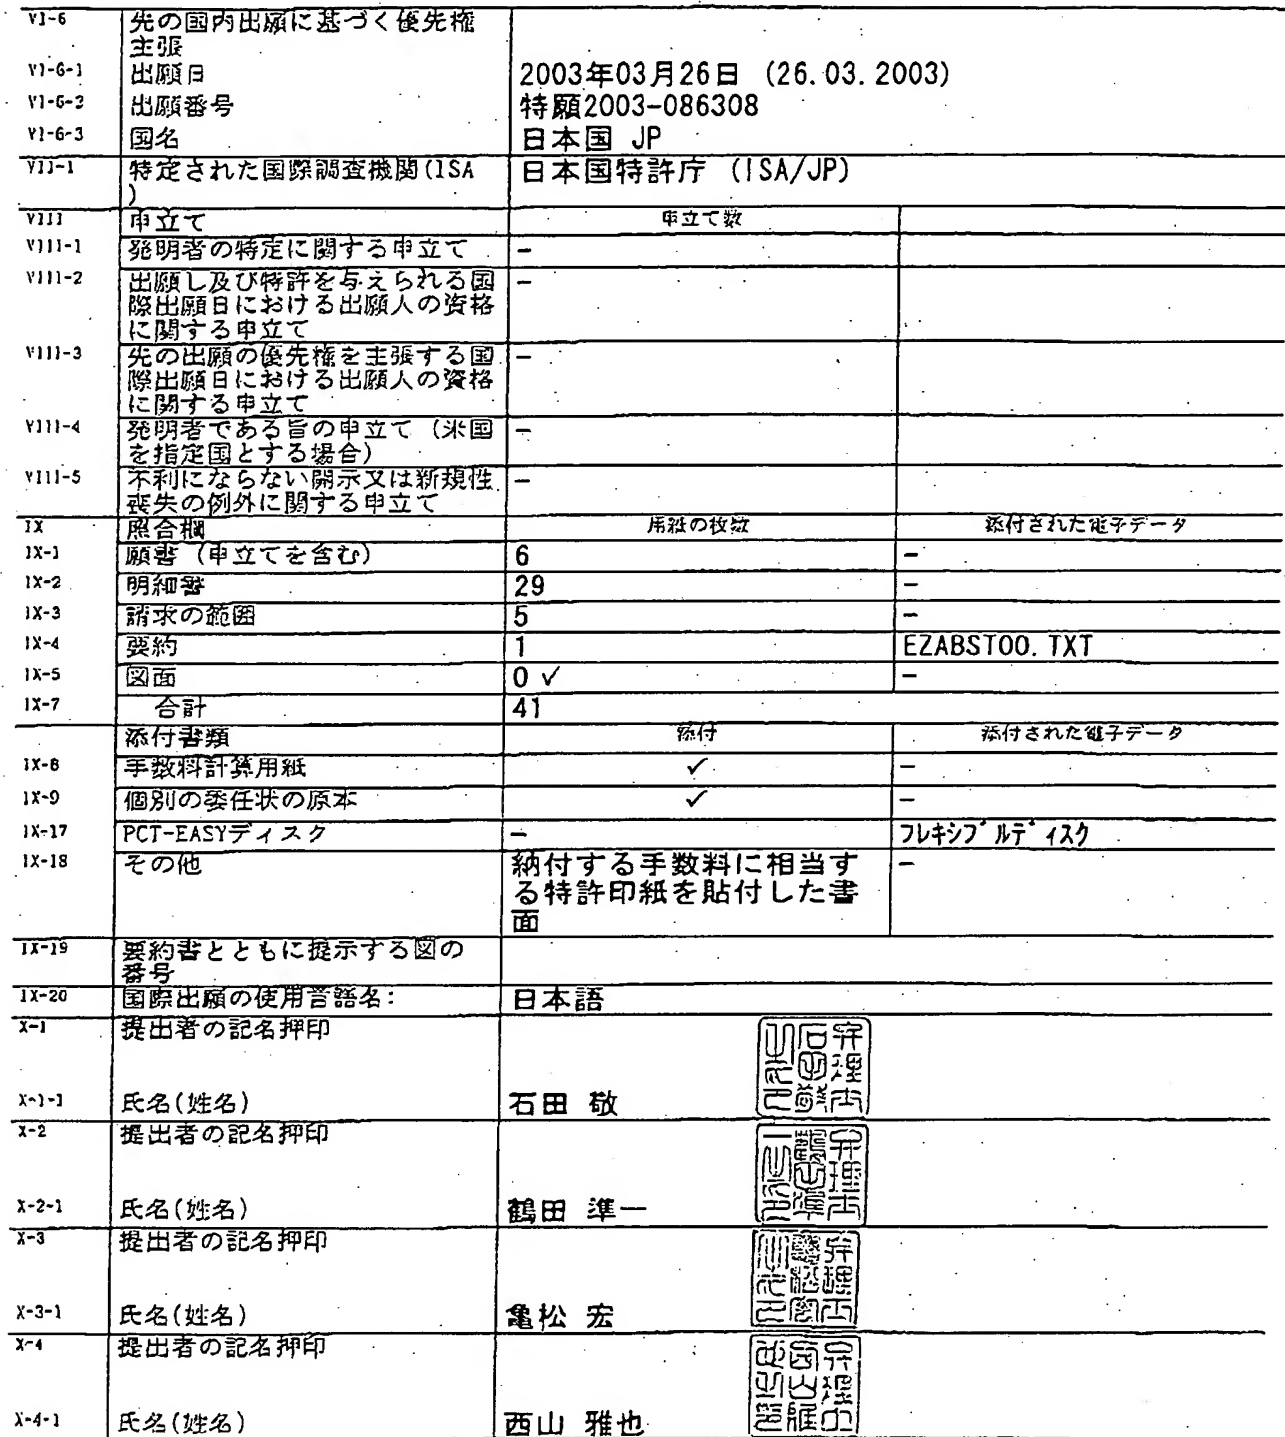 VI-6 先の国内出願に基づく優先権
主張
VI-6-1 出願日 2003年03月26日 (26.03.2003)
VI-6-2 出願番号 特願2003-086308
VI-6-3 国名 日本国 JP
VII-1 特定された国際調査機関(ISA 日本国特許庁 (ISA/JP)
)
VIII 申立て 申立て数
VIII-1 発明者の特定に関する申立て -
VIII-2 出願し及び特許を与えられる国 -
際出願日における出願人の資格
に関する申立て
VIII-3 先の出願の優先権を主張する国 -
際出願日における出願人の資格
に関する申立て
VIII-4 発明者である旨の申立て (米国 -
を指定国とする場合)
VIII-5 不利にならない開示又は新規性 -
喪失の例外に関する申立て
IX 照合欄 用紙の枚数 添付された電子データ
IX-1 願書 (申立てを含む) 6 -
IX-2 明細書 29 -
IX-3 請求の範囲 5 -
IX-4 要約 1 EZABST00.TXT
IX-5 図面 0 ✓ -
IX-7 合計 41
添付書類 添付 添付された電子データ
IX-8 手数料計算用紙 ✓ -
IX-9 個別の委任状の原本 ✓ -
IX-17 PCT-EASYディスク - フレキシブルディスク
IX-18 その他 納付する手数料に相当す -
る特許印紙を貼付した書
面
IX-19 要約書とともに提示する図の
番号
IX-20 国際出願の使用言語名: 日本語
X-1 提出者の記名押印
X-1-1 氏名(姓名) 石田 敬
X-2 提出者の記名押印
X-2-1 氏名(姓名) 鶴田 準一
X-3 提出者の記名押印
X-3-1 氏名(姓名) 亀松 宏
X-4 提出者の記名押印
X-4-1 氏名(姓名) 西山 雅也